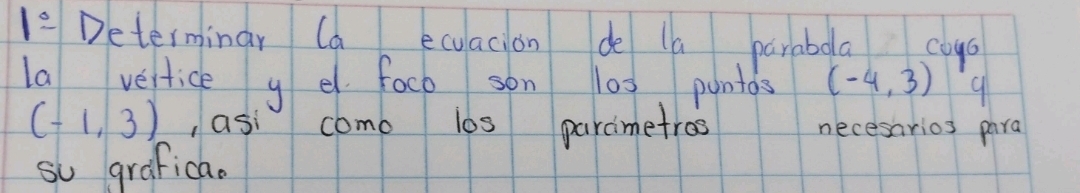 1º Determinar la ecuación de la parabola cuya
la vértice y el foco son los puntos (-4,3) y
(-1,3), asi como los parámetros necesarios para
su gráfica.